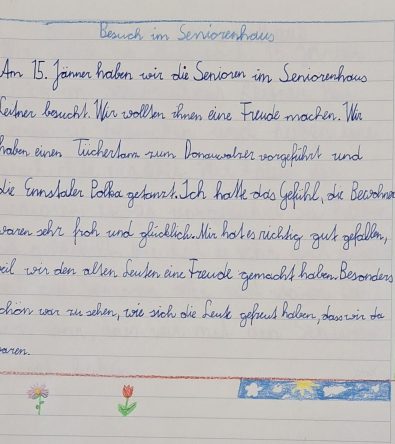 Besuch im Seniorenhaus
Am 15. Jänner haben wir die Senioren im Seniorenhaus
Leitner besucht. Wir wollten ihnen eine Freude machen. Wir
haben einen Tüchertanz zum Donauwalzer vorgeführt und
die Ennstaler Polka getanzt. Ich hatte das Gefühl, die Bewohner
waren sehr froh und glücklich. Mir hat es richtig gut gefallen,
weil wir den alten Leuten eine Freude gemacht haben. Besonders
schön war zu sehen, wie sich die Leute gefreut haben, dass wir da
waren.